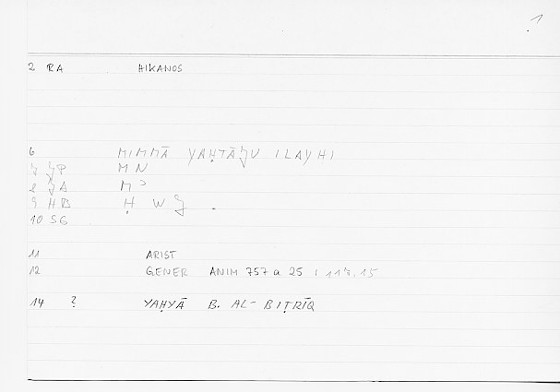 1
2 RA HIKANOS
6 MIMMĀ YAḤTĀǦU ILAYHI
7 ǦP MN
8 ǦA M
9 HB Ḥ W Ǧ .
10 SG
11 ARIST
12 GENER ANIM 757 a 25 : 117, 15
14 ? YAḤYĀ B. AL-BIṬRĪQ